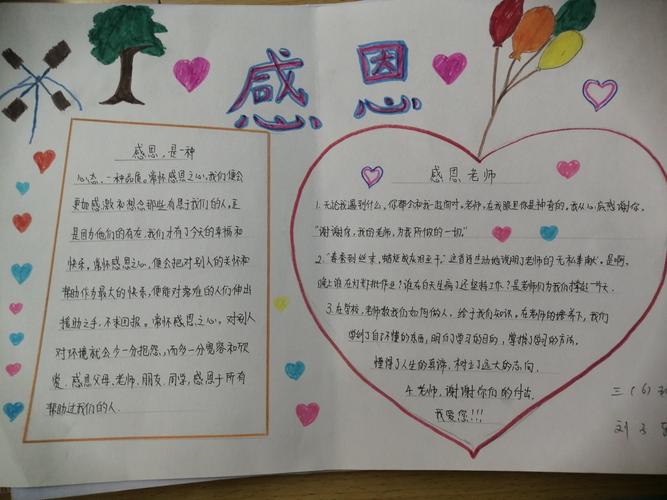 感恩
感恩，是一种
心态，一种品质。常怀感恩之心，我们便会
更加感激和想念那些有恩于我们的人，正
是因为他们的存在，我们才有了今天的幸福和
快乐。常怀感恩之心，便会把对别人的关怀和
帮助作为最大的快乐，便能对落难的人们伸出
援助之手，不求回报。常怀感恩之心，对别人
对环境就会少一分抱怨，而多一分宽容和欣
赏。感恩父母、老师、朋友、同学，感恩于所有
帮助过我们的人.
感恩老师
1.无论我遇到什么，你都会和我一起面对。老师，在我眼里你是神奇的。我从心底感谢你。
"谢谢你，我的老师，为我所做的一切."
2."春蚕到死丝方尽，蜡炬成灰泪始干."这首诗生动地说明了老师的无私奉献。是啊，
晚上谁在灯下批作业？谁在白天生病了还坚持工作？是老师们为我们撑起一片天.
3.在学校，老师教我们如何做人，给予我们知识，在老师的培养下，我们
学到了自己不懂的东西，明白了学习的目的，掌握了学习的方法，
懂得了人生的真谛，树立了远大的志向.
4.老师，谢谢你们的付出.
我爱您!!!
三（6）
刘子